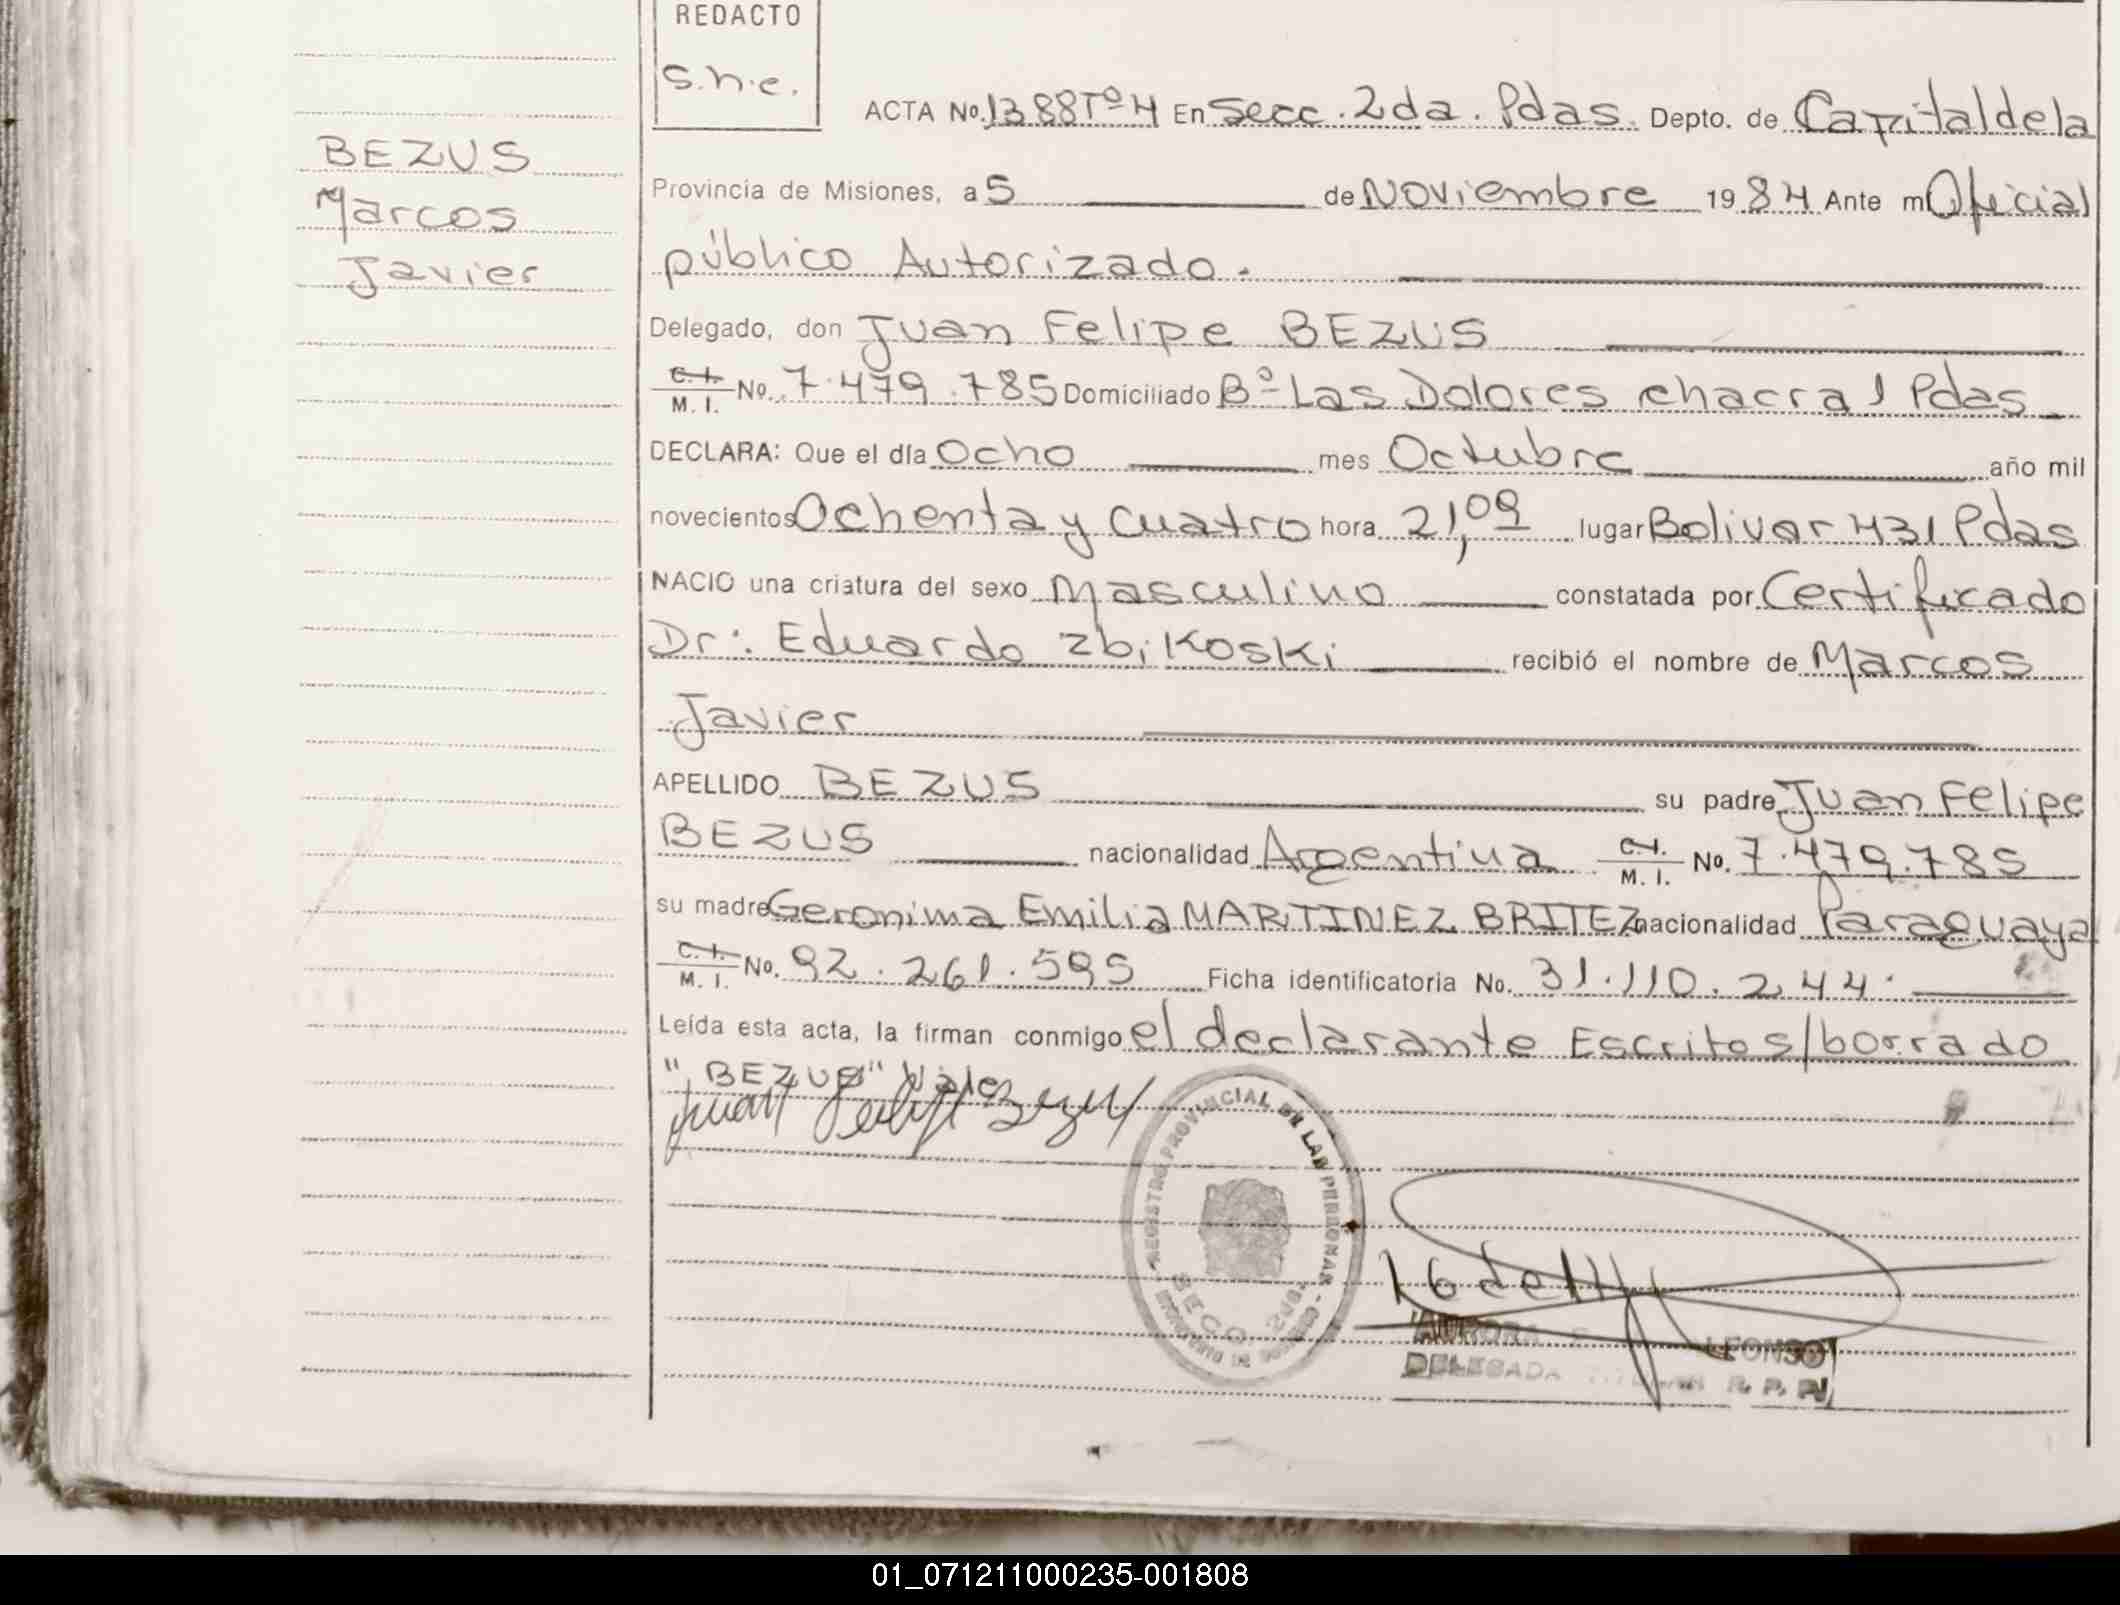 REDACTO
S.h.e.
ACTA No. 1388 Tº 4 En Secc. 2da. Pdas. Depto. de Capital de la
BEZUS
Marcos
Javier
Provincia de Misiones, a 5 de Noviembre 1984 Ante m Oficial
público Autorizado.
Delegado, don Juan Felipe BEZUS
C.I.
M. I. No. 7.479.785 Domiciliado Bº Las Dolores chacra 1 Pdas
DECLARA: Que el día Ocho mes Octubre año mil
novecientos Ochenta y Cuatro hora 21,09 lugar Bolivar 431 Pdas
NACIO una criatura del sexo Masculino constatada por Certificado
Dr: Eduardo Zbikoski recibió el nombre de Marcos
Javier
APELLIDO BEZUS su padre Juan Felipe
BEZUS nacionalidad Argentina C.I. M. I. No. 7.479.785
su madre Geronima Emilia MARTINEZ BRITEZ nacionalidad Paraguaya
C.I.
M. I. No. 92.261.595 Ficha identificatoria No. 31.110.244.
Leída esta acta, la firman conmigo el declarante Escritos/borrado
"BEZUS" Vale
Juan Felipe Bezus
REGISTRO PROVINCIAL DE LAS PERSONAS
SECC. 2da.
AURORA LFONSO
DELEGADA TITULAR R. P. P.
01_071211000235-001808